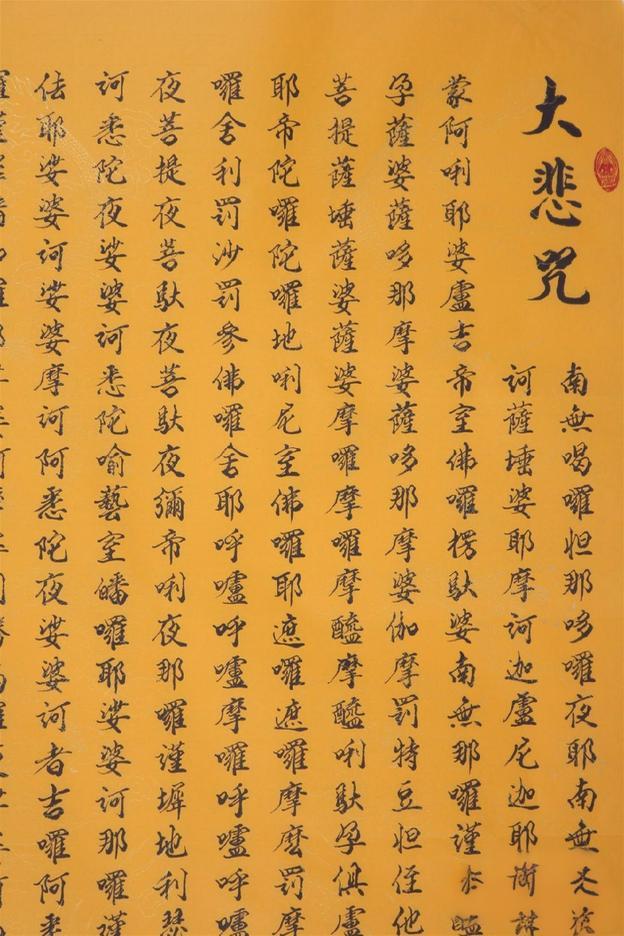 大悲咒
南無喝囉怛那哆囉夜耶南無
訶薩埵婆耶摩訶迦盧尼迦耶
蒙阿唎耶婆盧吉帝室佛囉楞馱婆南無那囉謹
孕薩婆薩哆那摩婆薩哆那摩婆伽摩罰特豆怛侄他
菩提薩埵薩婆薩婆摩囉摩囉摩醯摩醯唎馱孕俱盧
耶帝陀囉陀囉地唎尼室佛囉耶遮囉遮囉摩麼罰摩
囉舍利罰沙罰參佛囉舍耶呼嚧呼嚧摩囉呼嚧呼嚧
夜菩提夜菩馱夜菩馱夜彌帝唎夜那囉謹墀地利瑟
訶悉陀夜娑婆訶悉陀喻藝室皤囉耶娑婆訶那囉謹
佉耶娑婆訶娑婆摩訶阿悉陀夜娑婆訶者吉囉阿悉